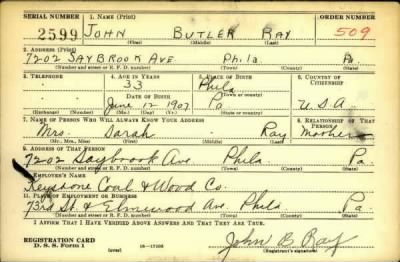 SERIAL NUMBER 1. NAME (Print) ORDER NUMBER
2599 JOHN BUTLER RAY 509
(First) (Middle) (Last)
2. ADDRESS (Print)
7202 SAYBROOK AVE Phila. Pa.
(Number and street or R. F. D. number) (Town) (County) (State)
3. TELEPHONE 4. AGE IN YEARS 5. PLACE OF BIRTH 6. COUNTRY OF CITIZENSHIP
33 Phila
DATE OF BIRTH
June 12 1907 Pa U.S.A.
(Exchange) (Number) (Mo.) (Day) (Yr.) (State or country)
7. NAME OF PERSON WHO WILL ALWAYS KNOW YOUR ADDRESS 8. RELATIONSHIP OF THAT PERSON
Mrs. Sarah Ray Mother
(Mr., Mrs., Miss) (First) (Middle) (Last)
9. ADDRESS OF THAT PERSON
7202 Saybrook Ave. Phila. Pa.
(Number and street or R. F. D. number) (Town) (County) (State)
10. EMPLOYER'S NAME
Keystone Coal & Wood Co.
11. PLACE OF EMPLOYMENT OR BUSINESS
73rd St. & Elmwood Ave Phila Pa.
(Number and street or R. F. D. number) (Town) (County) (State)
I AFFIRM THAT I HAVE VERIFIED ABOVE ANSWERS AND THAT THEY ARE TRUE.
REGISTRATION CARD
D. S. S. Form 1 (over) John B. Ray
(Registrant's signature)